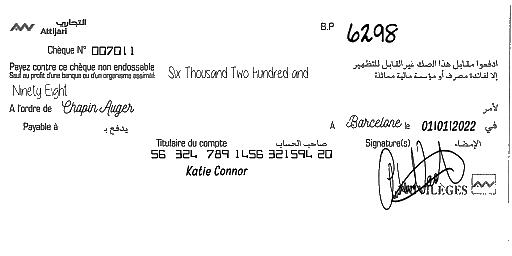 التجاري
Attijari
B.P 6298
Chèque N° 007011
Payez contre ce chèque non endossable
Sauf au profit d'une banque ou d'un organisme assimilé
Six Thousand Two Hundred and
ادفعوا مقابل هذا الصك غير القابل للتظهير
إلا لفائدة مصرف أو مؤسسة مالية مماثلة
Ninety Eight
A l'ordre de Chapin Auger
لأمر
Payable à يدفع بـ
A Barcelone le 01/01/2022 في
Titulaire du compte صاحب الحساب
Signature(s) الإمضاء
56 324 789 1456 321594 20
Katie Connor
VILÈGES